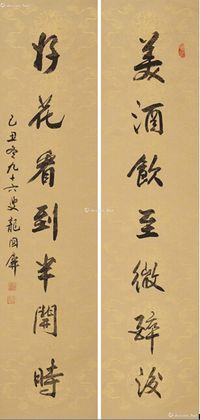 美酒飲至微醉後
好花看到半開時
己丑冬九十六叟龍國屏